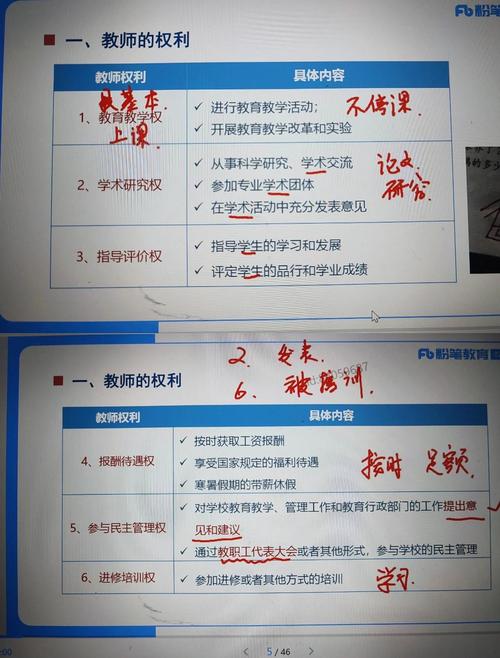 粉笔
一、教师的权利
教师权利
具体内容
最基本
1、教育教学权
上课
进行教育教学活动；
不停课
开展教育教学改革和实验
2、学术研究权
从事科学研究、学术交流
参加专业学术团体
在学术活动中充分发表意见
论文
研究
3、指导评价权
指导学生的学习和发展
评定学生的品行和学业成绩
粉笔教育
2. 发表
6. 被培训
一、教师的权利
教师权利
具体内容
4、报酬待遇权
按时获取工资报酬
享受国家规定的福利待遇
寒暑假期的带薪休假
按时 足额
5、参与民主管理权
对学校教育教学、管理工作和教育行政部门的工作提出意
见和建议
通过教职工代表大会或者其他形式，参与学校的民主管理
6、进修培训权
参加进修或者其他方式的培训
学习
:00
5 / 46